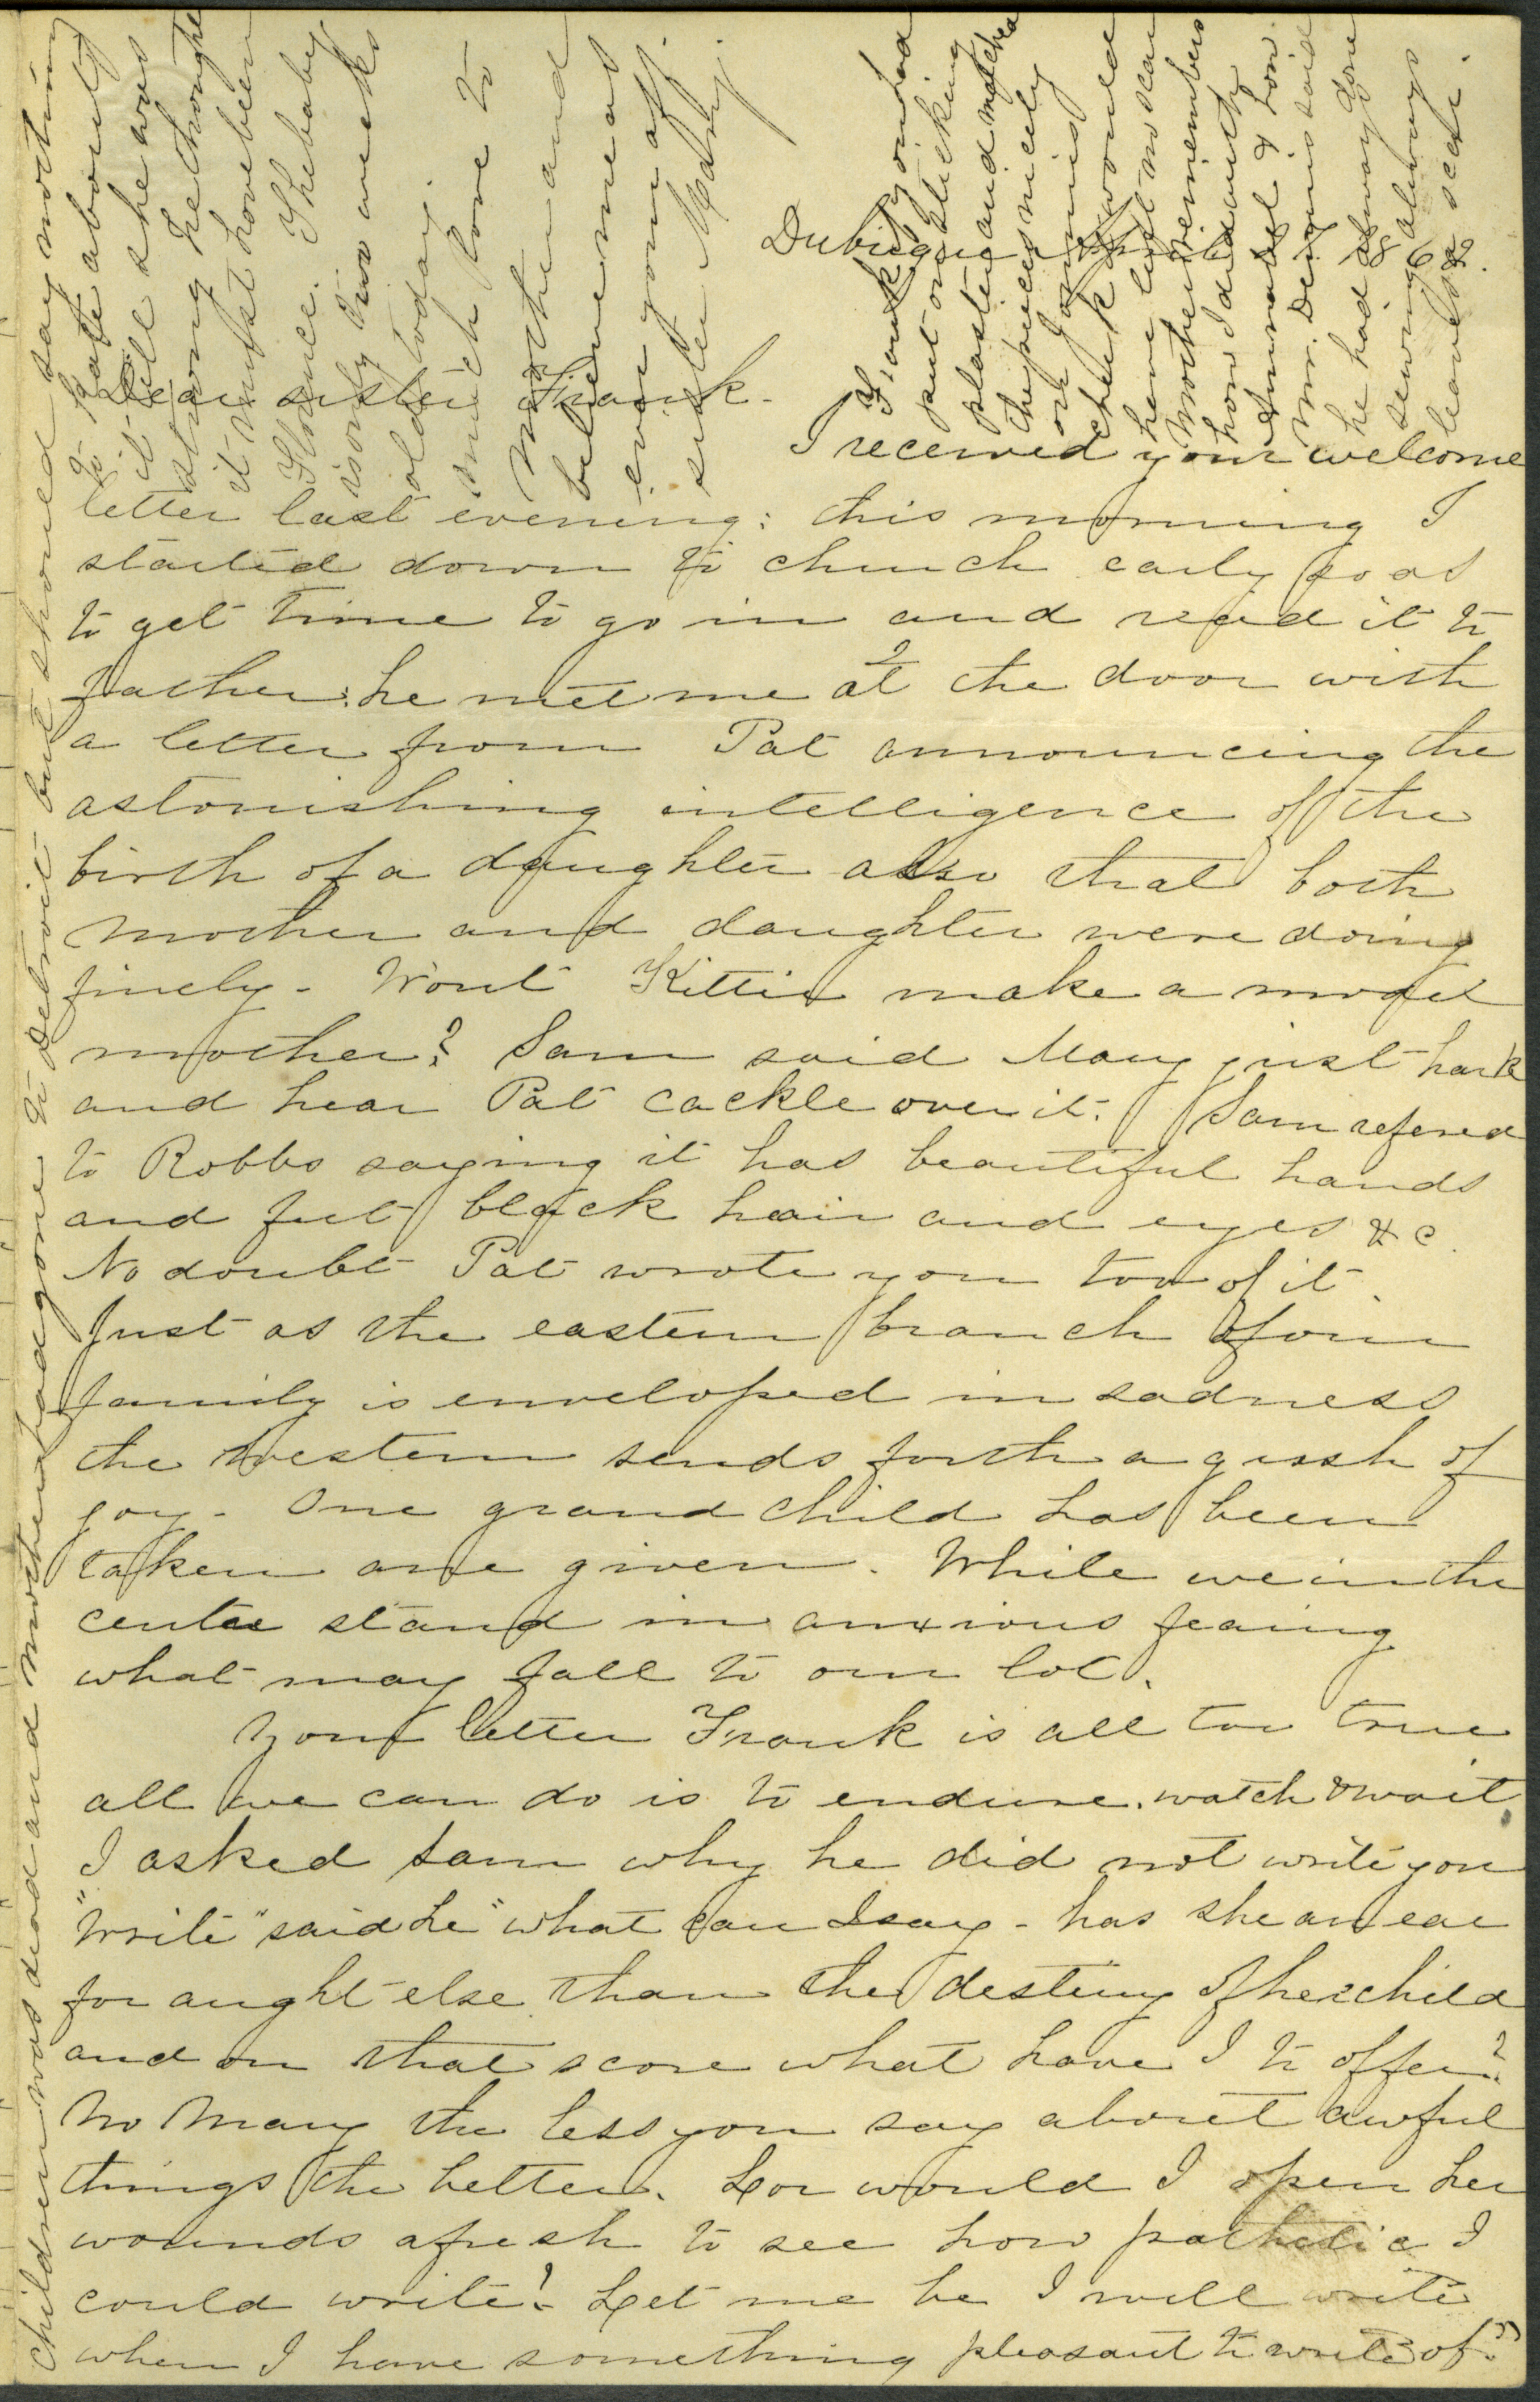 Dubuque April 27 1862.
Dear sister Frank.
I received your welcome
letter last evening: this morning I
started down to church early so as
to get time to go in and read it to
father: he met me at the door with
a letter from Pat announcing the
astonishing intelligence of the
birth of a daughter also that both
mother and daughter were doing
finely. Wont Kittie make a model
mother? Sam said Mary just hark
and hear Pat cackle over it. Sam refered
to Robbs saying it has beautiful hands
and feet black hair and eyes &c.
No doubt Pat wrote you too of it.
Just as the eastern branch of our
family is enveloped in sadness
the western sends forth a gush of
joy. One grand child has been
taken one given. While we in the
centre stand in anxious fearing
what may fall to our lot.
Your letter Frank is all too true
all we can do is to endure, watch & wait.
I asked Sam why he did not write you
"Write" said he "what can I say - has she an ear
for aught else than the destiny of her child
and on that score what have I to offer?
No Mary the less you say about awful
things the better. Lor would I open her
wounds afresh to see how pathetic I
could write! Let me be I will write
when I have something pleasant to write of."
children was dead and mother had gone to Detroit but should say nothing
to Kate about
it till she was
strong he thought
it must have been
Florence. The baby
is only two weeks
old today.
much love to
Mother and
believe me as
ever your aff.
sister Mary.
Frank if you had
put on sticking
plaster and matched
the pieces nicely
on Jonnies
cheek it would
have left no scar
Mother remembers
how I did with
Anna Bel & how
Mr. Dennis said
he had it done
sewing always
leaves a scar.